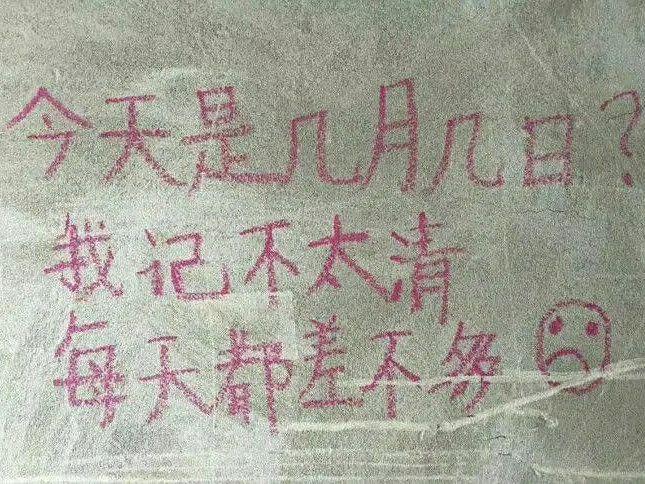 今天是几月几日?
我记不太清
每天都差不多